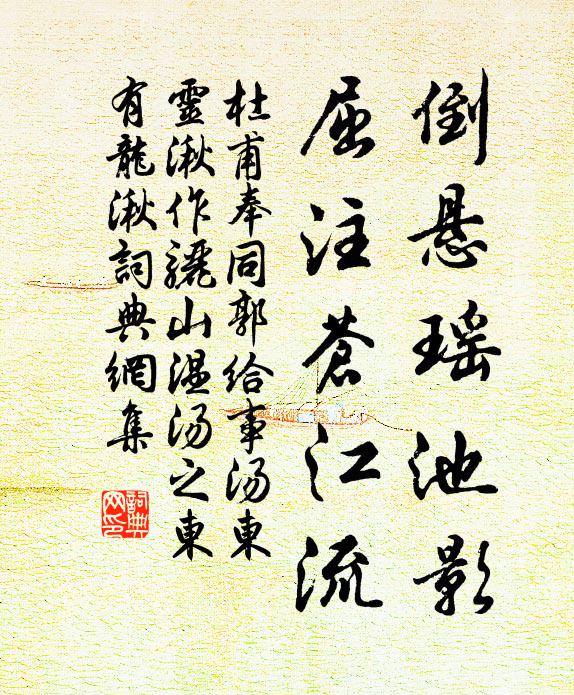 倒悬瑶池影
屈注蒼江流
杜甫奉同郭給事湯東
靈湫作驪山溫湯之東
有龍湫詞典網集
詞典网印